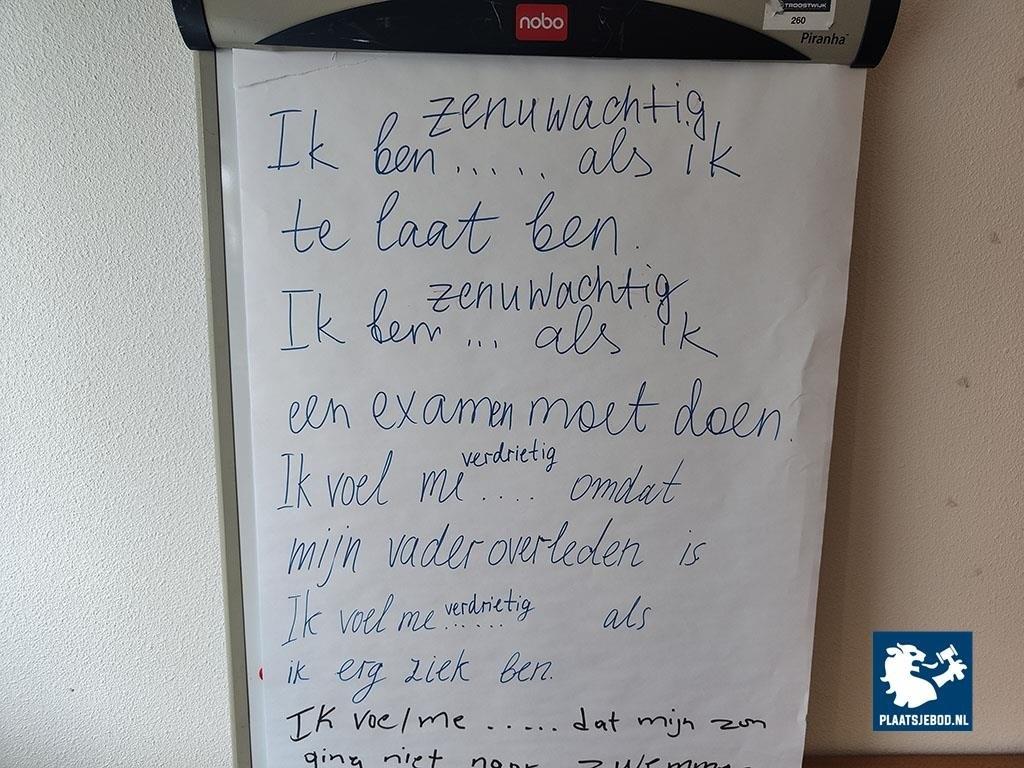 TROOSTWIJK
260
nobo
Piranha
zenuwachtig
Ik ben ..... als ik
te laat ben.
zenuwachtig
Ik ben ... als ik
een examen moet doen.
verdrietig
Ik voel me .... omdat
mijn vader overleden is
verdrietig
Ik voel me ...... als
ik erg ziek ben.
Ik voel me ..... dat mijn zon
ging niet naar
PLAATSJEBOD.NL